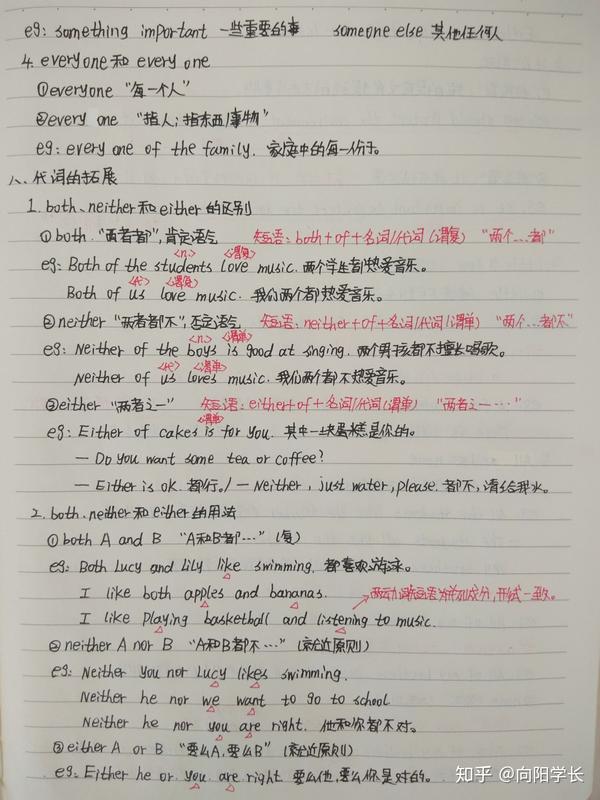 eg: something important 一些重要的事 someone else 其他任何人
4. everyone 和 every one
①everyone "每一个人"
②every one "指人；指东西/事物"
eg: every one of the family. 家庭中的每一份子。
八、代词的拓展
1. both、neither 和 either 的区别
①both. "两者都", 肯定语气 短语: both+of+名词/代词 (谓复) "两个…都"
<n.> <谓复>
eg: Both of the students love music. 两个学生都热爱音乐。
<代> <谓复>
Both of us love music. 我们两个都热爱音乐。
②neither "两者都不", 否定语气 短语: neither+of+名词/代词 (谓单) "两个…都不"
<n.> <谓单>
eg: Neither of the boys is good at singing. 两个男孩都不擅长唱歌。
<代> <谓单>
Neither of us loves music. 我们两个都不热爱音乐。
③either "两者之一" 短语: either+of+名词/代词 (谓单) "两者之一…"
<谓单>
eg: Either of cakes is for you. 其中一块蛋糕是你的。
— Do you want some tea or coffee?
— Either is ok. 都行。/ — Neither, just water, please. 都不, 请给我水。
2. both、neither 和 either 的用法
①both A and B "A和B都…" (复)
eg: Both Lucy and Lily like swimming. 都喜欢游泳。
I like both apples and bananas.
I like playing basketball and listening to music. 并列成分, 形式一致。
②neither A nor B "A和B都不…" (就近原则)
eg: Neither you nor Lucy likes swimming.
Neither he nor we want to go to school
Neither he nor you are right. 他和你都不对。
③either A or B "要么A, 要么B" (就近原则)
eg: Either he or you are right 要么他, 要么你是对的。
知乎 @向阳学长